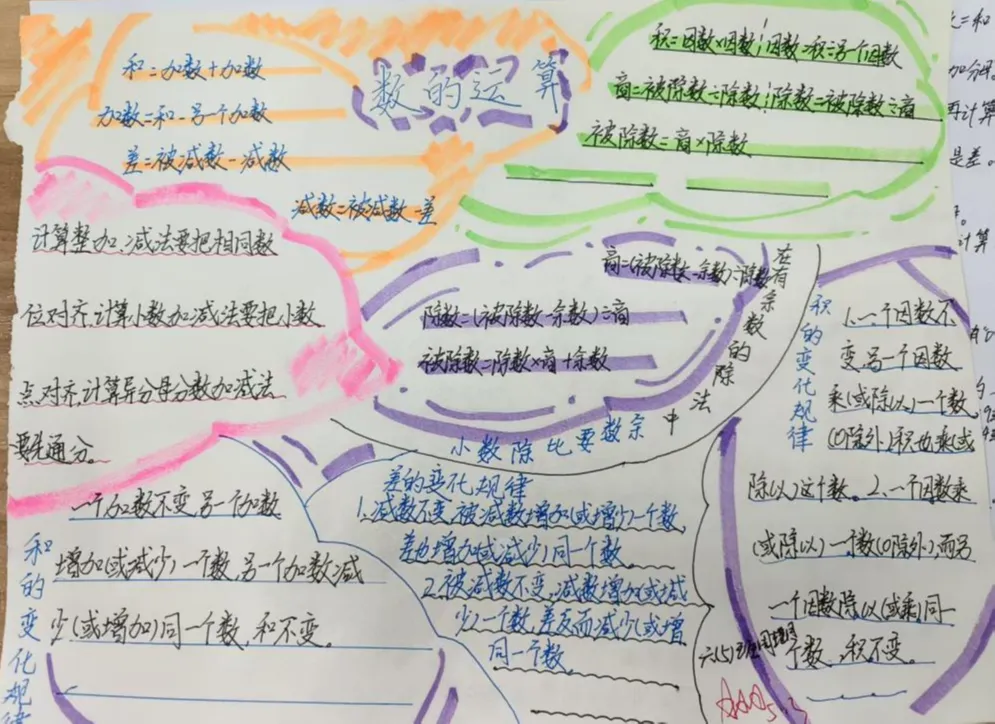 数的运算
和=加数+加数
加数=和-另一个加数
差=被减数-减数
减数=被减数-差
积=因数×因数!因数=积÷另一个因数
商=被除数÷除数!除数=被除数÷商
被除数=商×除数
计算整加.减法要把相同数
位对齐.计算小数加减法要把小数
点对齐.计算异分母分数加减法
要先通分。
商=(被除数-余数)÷除数
除数=(被除数-余数)÷商
被除数=除数×商+余数
在有余数的除法
中
余数要比除数小
积的变化规律
1.一个因数不
变,另一个因数
乘(或除以)一个数
(0除外),积也乘(或
除以)这个数。2.一个因数乘
(或除以)一个数(0除外),而另
一个因数除以(或乘)同一
个数,积不变。
和的变化规律
一个加数不变,另一个加数
增加(或减少)一个数,另一个加数减
少(或增加)同一个数,和不变。
差的变化规律
1.减数不变,被减数增加(或增少)一个数
差也增加(或减少)同一个数。
2.被减数不变,减数增加(或减
少)一个数,差反而减少(或增
同一个数。
六(5)班
加分母。
再计算
是差。
计算